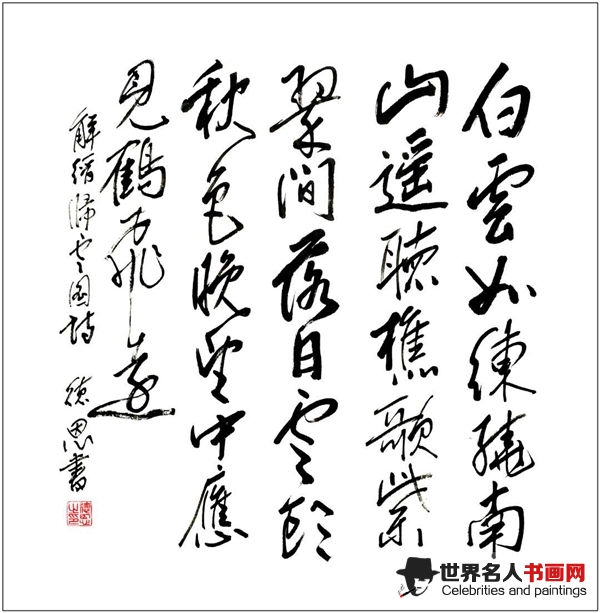 白雲如練繞南
山遥聽樵歌紫
翠間落日雲邨
秋色晚望中應
見鶴飛還
解縉歸雲圖詩 德思書
世界名人书画网
Celebrities and paintings